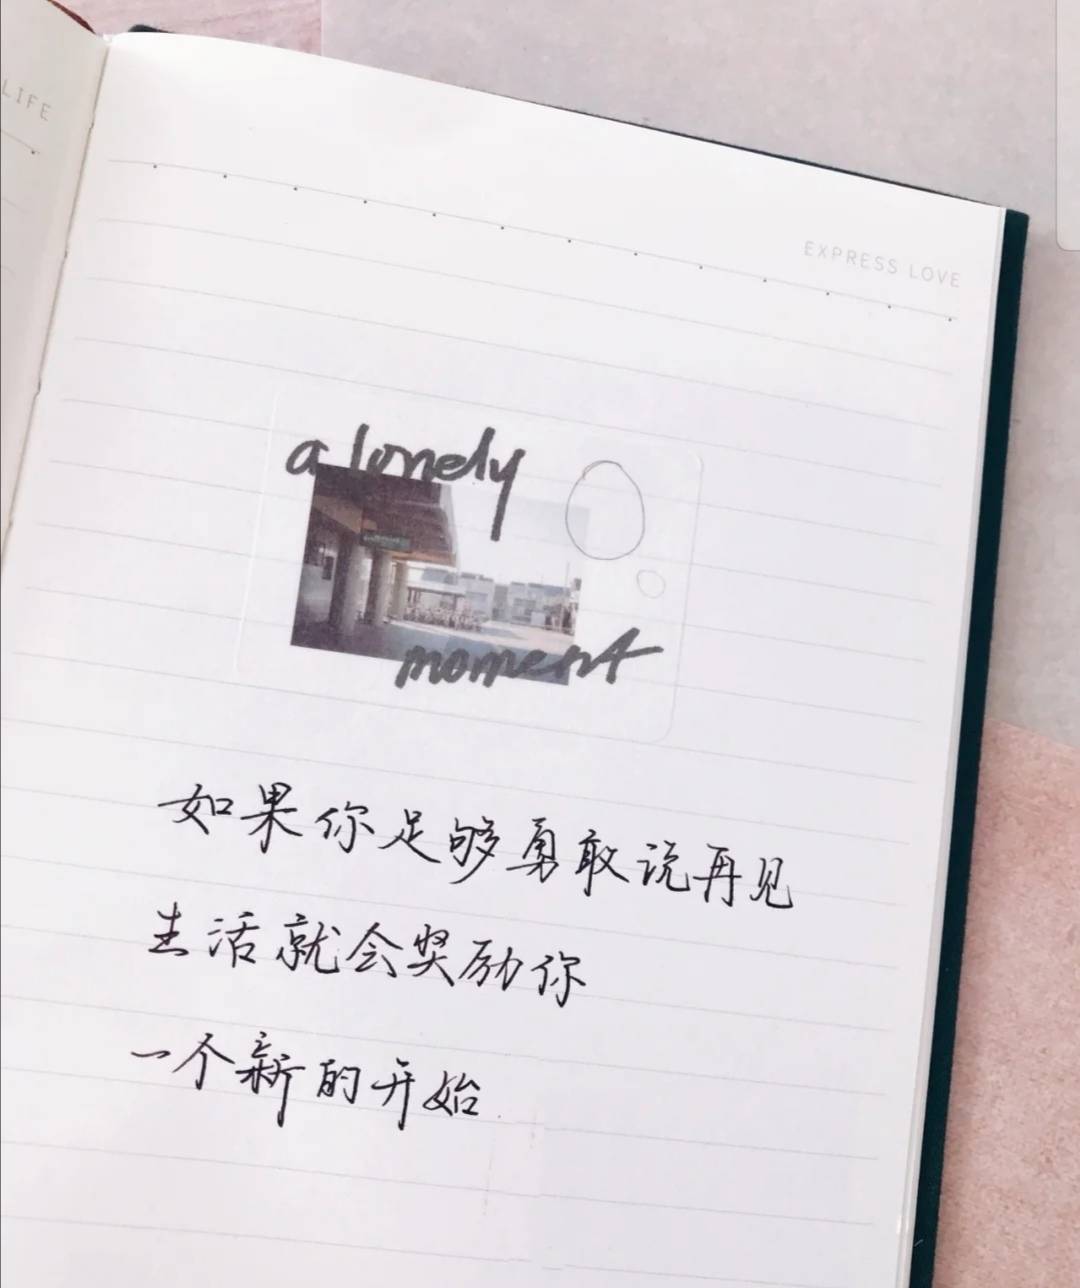 LIFE
EXPRESS LOVE
a lonely
moment
如果你足够勇敢说再见
生活就会奖励你
一个新的开始